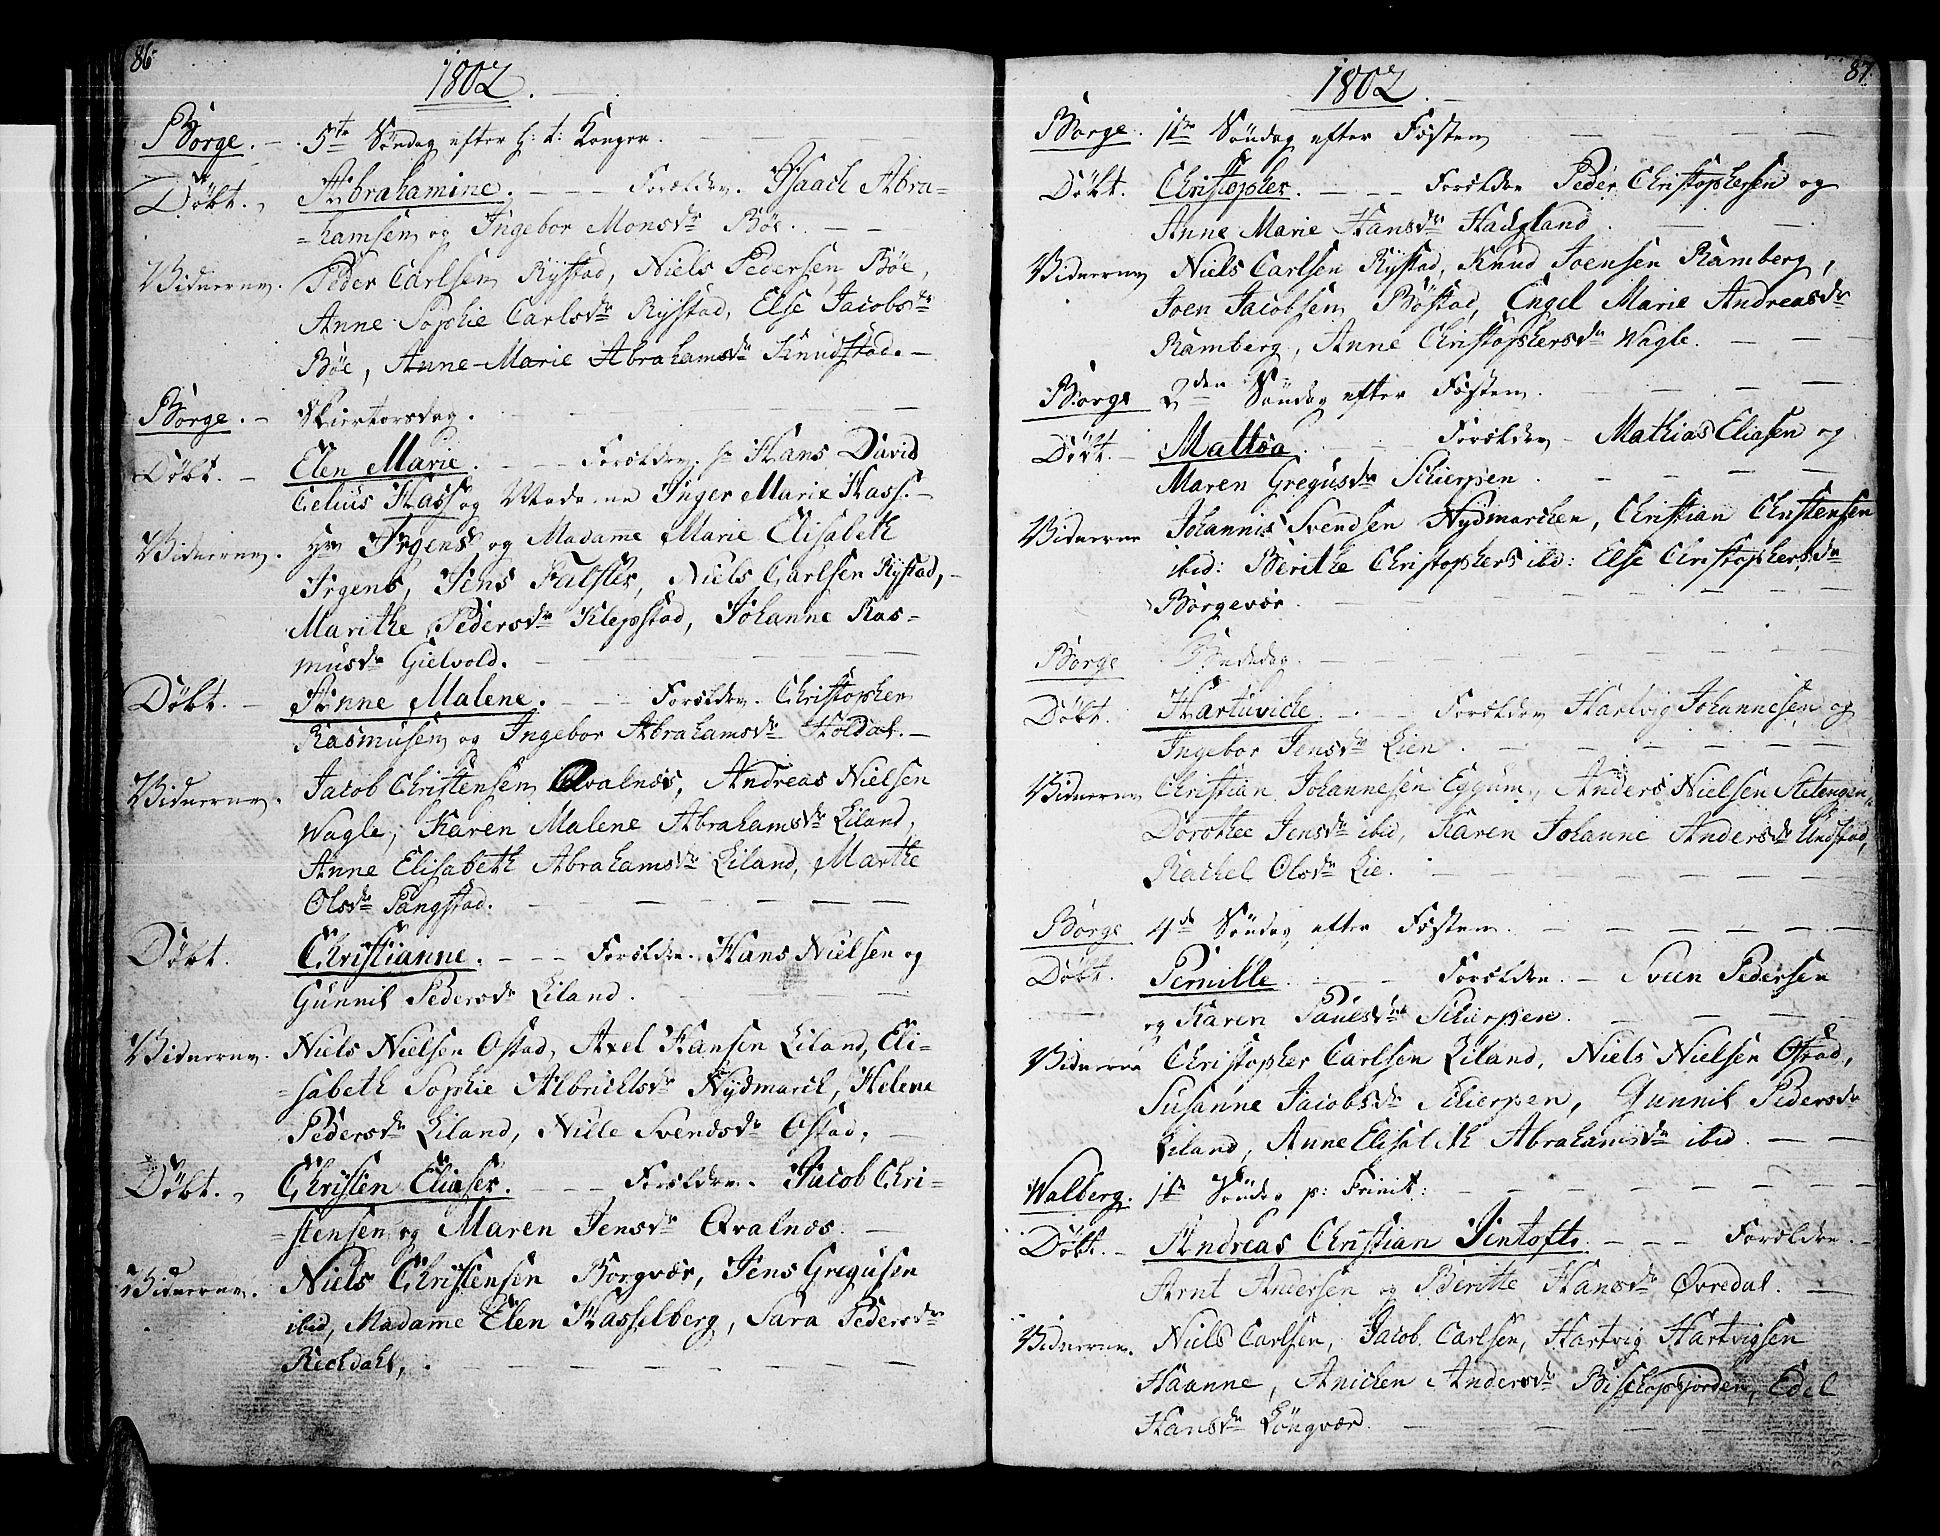 86
1802.
Borge. 5te Søndag efter H: t: Konger.
Døbt. Abrahamine. Forældre. Isaach Abra-
=hamsen og Ingebor Monsdr Bøe.
Vidnerne. Peder Carlsen Rystad, Niels Pedersen Bøe,
Anne Sophie Carlsdr Rystad, Else Jacobsdr
Bøe, Anne Marie Abrahamsdr Knudstad.
Borge. Skiertorsdag.
Døbt. Elen Marie. Forældre. Hr Hans David
Celius Hass og Madame Inger Marie Hass.
Vidnerne. Hr Irgens og Madame Marie Elisabeth
Irgens, Jens Falster, Niels Carlsen Rystad,
Marithe Pedersdr Klepstad, Johanne Ras-
musdr Gielvold.
Døbt. Anne Malene. Forældre. Christopher
Rasmusen og Ingebor Abrahamsdr Holdal.
Vidnerne. Jacob Christensen Qvalnæs, Andreas Nielsen
Wagle, Karen Malene Abrahamsdr Liland,
Anne Elisabeth Abrahamsdr Liland, Marthe
Olsdr Pangstad.
Døbt. Christianne. Forældre. Hans Nielsen og
Gunnil Pedersdr Liland.
Vidnerne. Niels Nielsen Ostad, Axel Hansen Liland, Eli-
=sabeth Sophie Albrichtsdr Nydmarck, Helene
Pedersdr Liland, Nille Svendsdr Ostad.
Døbt. Christen Eliaser. Forældre. Jacob Chri-
=stensen og Maren Jensdr Qvalnæs.
Vidnerne. Niels Christensen Borgvær, Jens Gregusen
ibid, Madame Elen Hasselberg, Sara Pedersdr
Rechdahl,
87.
1802.
Borge. 1ste Søndag efter Fasten
Døbt. Christopher. Forældre Peder Christophersen og
Anne Marie Hansdr Haugland.
Vidnerne Niels Carlsen Rystad, Knud Joensen Ramberg,
Joen Jacobsen Bøstad, Engel Marie Andreasdr
Ramberg, Anne Christophersdr Wagle.
Borge 2den Søndag efter Fasten.
Døbt. Mattea. Forældre Mathias Eliasen og
Maren Gregusdr Schierpen.
Vidnerne Johannis Svendsen Nydmarchen, Christian Christensen
ibid: Berithe Christophers ibid: Else Christophersdr
Borgevær.
Borge Bededag.
Døbt. Hartuviche. Forældre Hartvig Johannesen og
Ingebor Jensdr Lien.
Vidnerne Christian Johannesen Eggum, Anders Nielsen Stetengen,
Dorothee Jensdr ibid, Karen Johanne Andersdr Undstad,
Rachel Olsdr Lie.
Borge 4de Søndag efter Fasten.
Døbt. Pernille. Forældre. Sveen Pedersen
og Karen Paulsdr Schierpen.
Vidnerne Christopher Carlsen Liland, Niels Nielsen Ostad,
Susanne Jacobsdr Schierpen, Gunnil Pedersdr
Liland, Anne Elisabeth Abrahamsdr ibid.
Walberg. 1ste Søndag p: Trinit:
Døbt. Andreas Christian Jentoft. Forældre.
Arnt Andersen og Berithe Hansdr Øvredal.
Vidnerne. Niels Carlsen, Jacob Carlsen, Hartvig Hartvigsen
Haanne, Anichen Andersdr Bischopsfjorden, Edel
Hansdr Longvær.